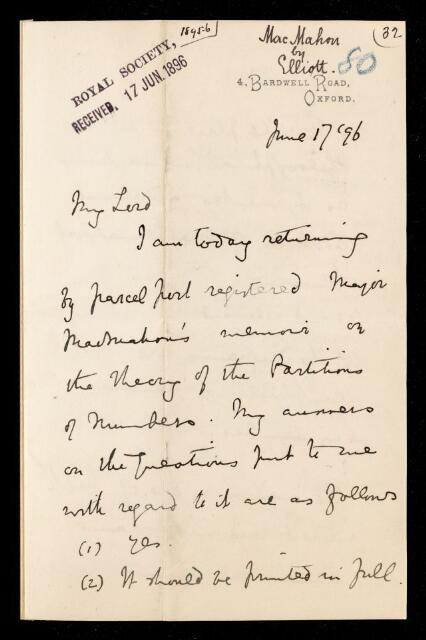 1895-6
ROYAL SOCIETY,
RECEIVED. 17 JUN. 1896
MacMahon
by
Elliott.
32
80
4, BARDWELL ROAD,
OXFORD.
June 17 '96
My Lord
I am today returning
by parcel post registered Major
MacMahon's memoir on
the Theory of the Partitions
of Numbers. My answers
on the questions put to me
with regard to it are as follows
(1) Yes.
(2) It should be printed in full.